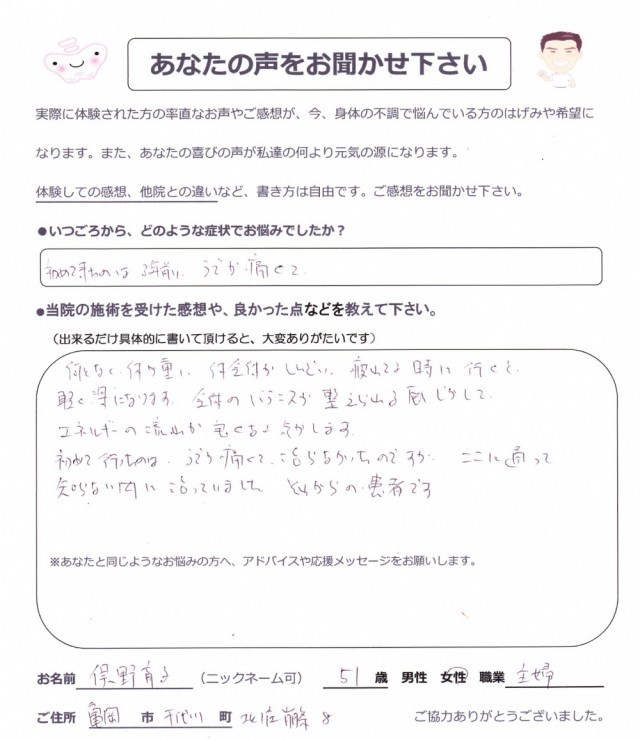 あなたの声をお聞かせ下さい
実際に体験された方の率直なお声やご感想が、今、身体の不調で悩んでいる方のはげみや希望に
なります。また、あなたの喜びの声が私達の何より元気の源になります。
体験しての感想、他院との違いなど、書き方は自由です。ご感想をお聞かせ下さい。
●いつごろから、どのような症状でお悩みでしたか？
初めて来たのは 3年前、うでが痛くて、
●当院の施術を受けた感想や、良かった点などを教えて下さい。
（出来るだけ具体的に書いて頂けると、大変ありがたいです）
何となく、体が重い、体全体がしんどい、疲れてる時に行くと、
軽く楽になります。全体のバランスが整えられる感じがして、
エネルギーの流れが良くなる気がします。
初めて行ったのは、うでが痛くて、治らなかったのですが、ここに通って
知らない内に治っていました。それからの患者です
※あなたと同じようなお悩みの方へ、アドバイスや応援メッセージをお願いします。
お名前 俣野育子 （ニックネーム可） 51 歳 男性 女性 職業 主婦
ご住所 亀岡 市 千代川 町 ご協力ありがとうございました。